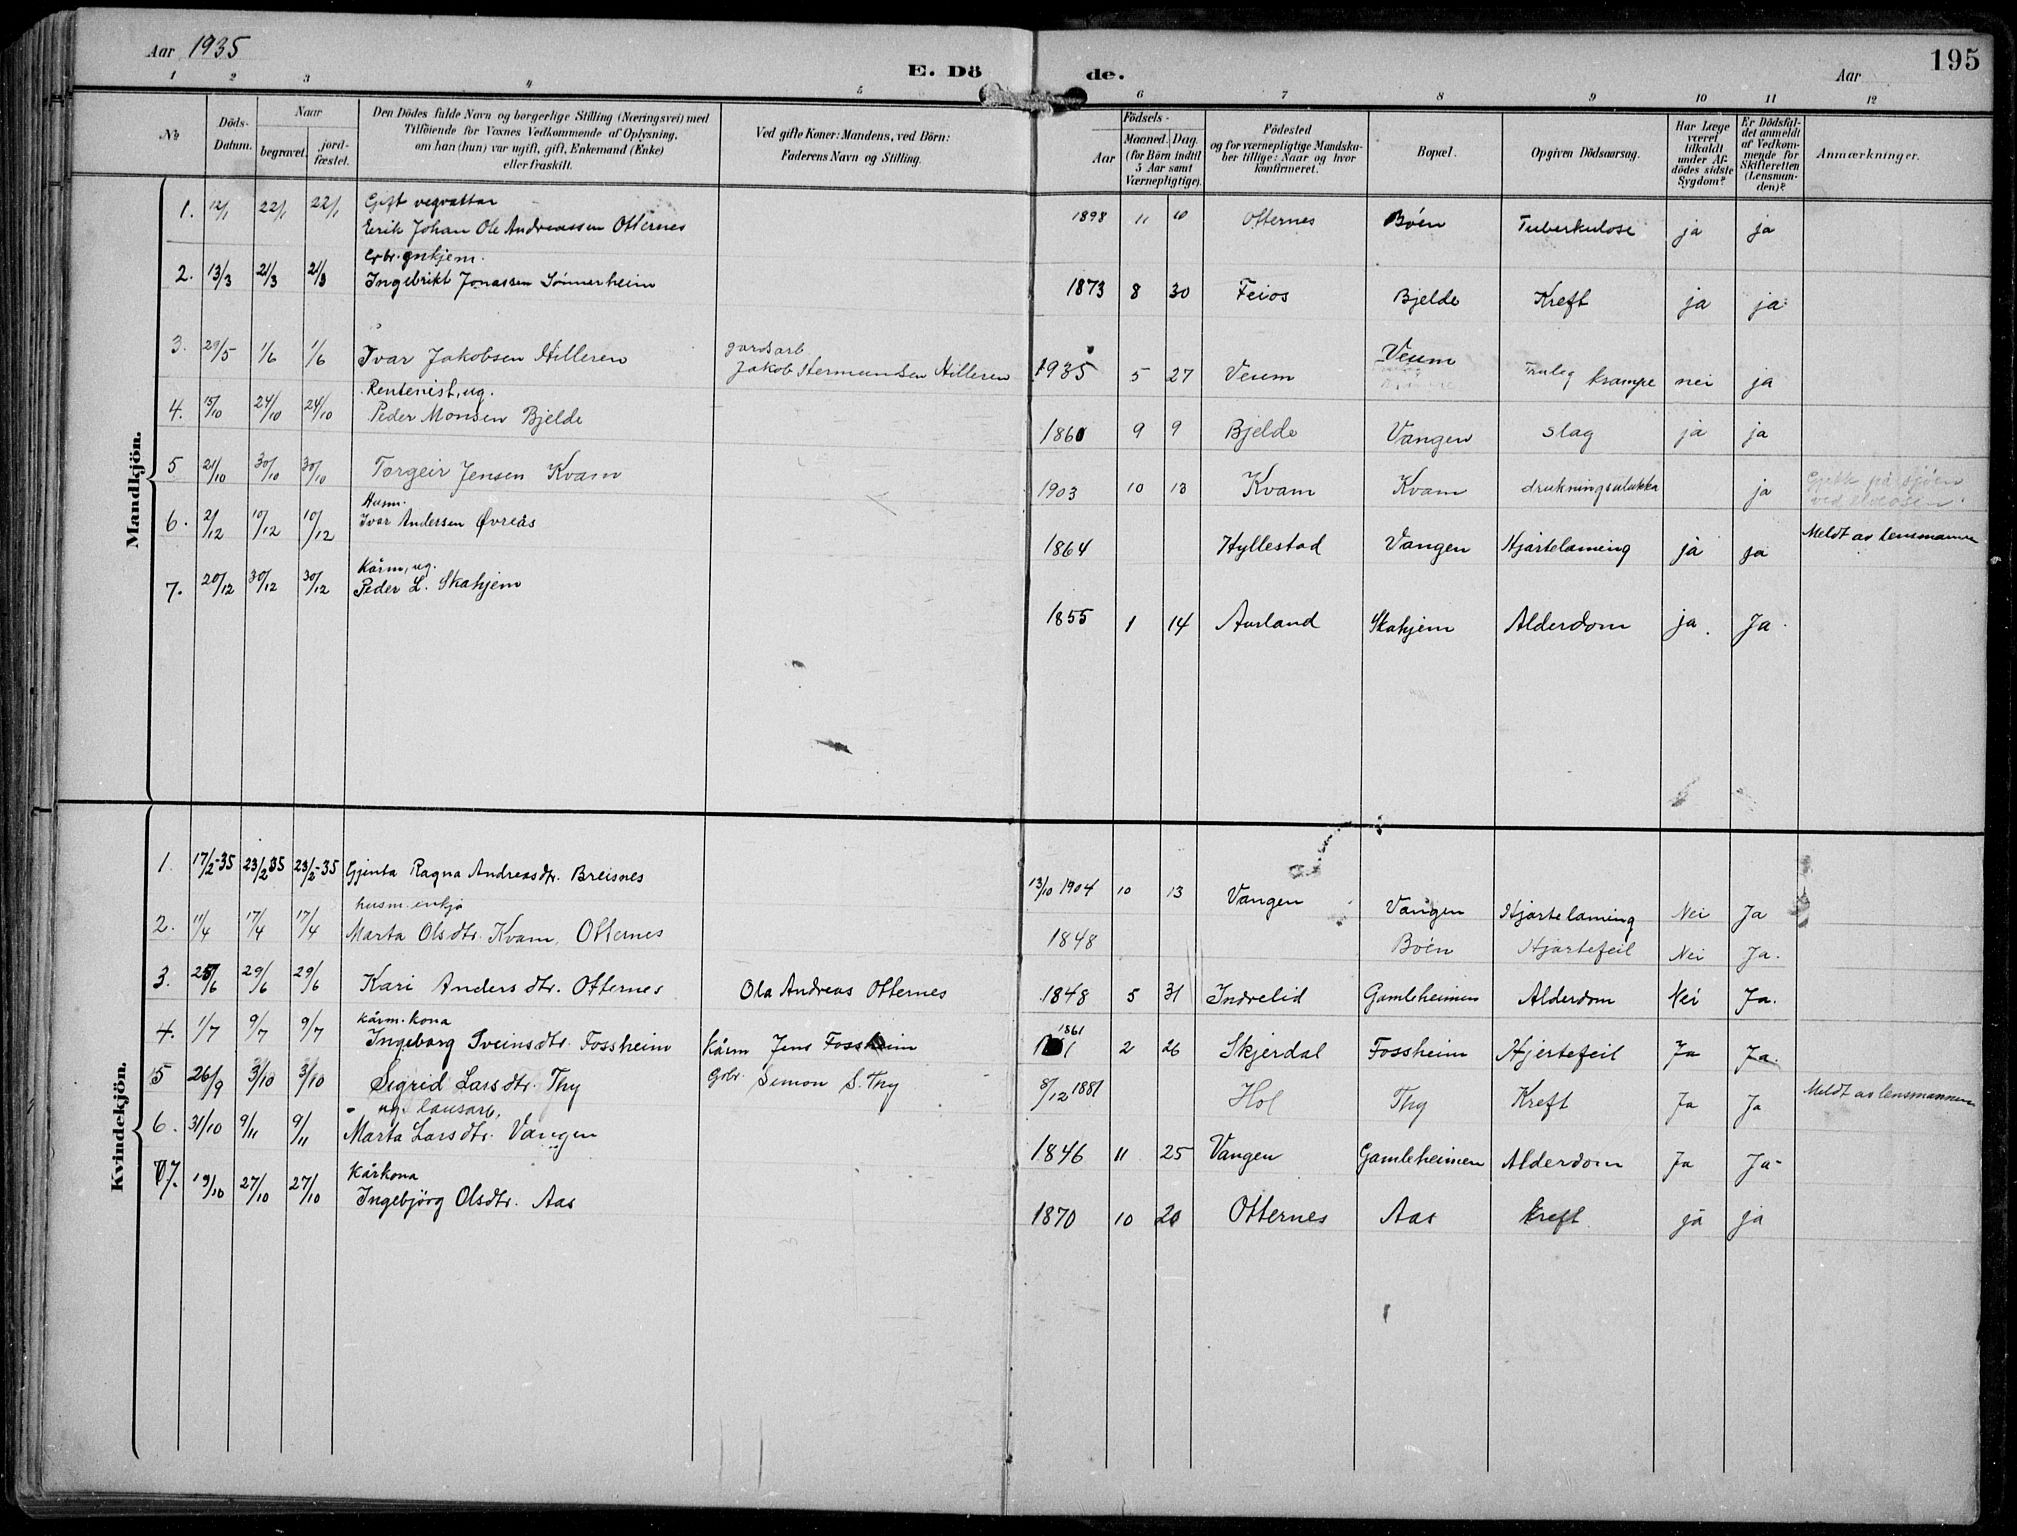 Aar 1935
E. Döde.
Aar
195
1 2 3 4 5 6 7 8 9 10 11 12
No
Döds-Datum.
Naar
begravet.
jord-fæstet.
Den Dödes fulde Navn og borgerlige Stilling (Næringsvei) med
Tilföiende for Voxnes Vedkommende af Oplysning,
om han (hun) var ugift, gift, Enkemand (Enke)
eller fraskilt.
Ved gifte Koner: Mandens, ved Börn:
Faderens Navn og Stilling.
Födsels-
Aar
Maaned. Dag.
(for Börn indtil
5 Aar samt
Værnepligtige).
Födested
og for værnepligtige Mandska-
ber tillige: Naar og hvor
konfirmeret.
Bopæl.
Opgiven Dödsaarsag.
Har Læge
været
tilkaldt
under Af-
dödes sidste
Sygdom?
Er Dödsfal-
det anmeldt
af Vedkom-
mende for
Skifteretten
(Lensman-
den)?
Anmærkninger.
Mandkjön.
Gift vegvaktar
1. 12/1 22/1 22/1 Eirik Johan Ole Andreassen Otternes 1898 11 10 Otternes Böen Tuberkulose ja ja
Gbr. enkjem.
2. 13/3 21/3 21/3 Ingebrikt Jonassen Sönnerheim 1873 8 30 Feios Bjelde Kreft ja ja
3. 29/5 1/6 1/6 Ivar Jakobsen Hilleren gardsarb Jakob Hermundsen Hilleren 1935 5 27 Veum Veum Truleg krampe nei ja
Rentenist, ug.
4. 15/10 24/10 24/10 Peder Monsen Bjelde 1860 9 9 Bjelde Vangen Slag ja ja
5 21/10 30/10 30/10 Torgeir Jensen Kvam 1903 10 13 Kvam Kvam drukningsulukka ja Gjekk på sjöen
ved elvaosen.
Husm.
6. 2/12 10/12 10/12 Ivar Andersen Øvreås 1864 Hyllestad Vangen Hjartelaming ja ja Meldt av lensmannen
Kårm, ug.
7. 20/12 30/12 30/12 Peder L. Skahjem 1855 1 14 Aurland Skahjem Alderdom ja. Ja.
Kvindekjön.
1. 17/2-35 23/2 35 23/2-35 Gjenta Ragna Andreasdtr. Breisnes 13/10 1904 10 13 Vangen Vangen Hjartelaming Nei Ja
husm. enkja
2. 11/4 17/4 17/4 Marta Olsdtr. Kvam, Otternes 1848 Böen Hjartefeil Nei Ja.
3. 25/6 29/6 29/6 Kari Andersdtr. Otternes Ola Andreas Otternes 1848 5 31 Indrelid Gamleheimen Alderdom Nei Ja.
Kårm. kona
4. 1/7 9/7 9/7 Ingeborg Sveinsdtr. Fossheim Kårm Jens Fossheim 1861 2 26 Skjerdal Fossheim Hjertefeil Ja Ja.
5 26/9 3/10 3/10 Sigrid Larsdtr. Thy Gbr. Simon S. Thy 8/12 1881 Hol Thy Kreft Ja Ja Meldt av lensmannen
ug. lausarb,
6. 31/10 9/11 9/11 Marta Larsdtr. Vangen 1846 11 25 Vangen Gamleheimen Alderdom Ja Ja-
Kårkona
7. 19/10 27/10 27/10 Ingebjörg Olsdtr. Aas 1870 10 20 Otternes Aas kreft ja ja